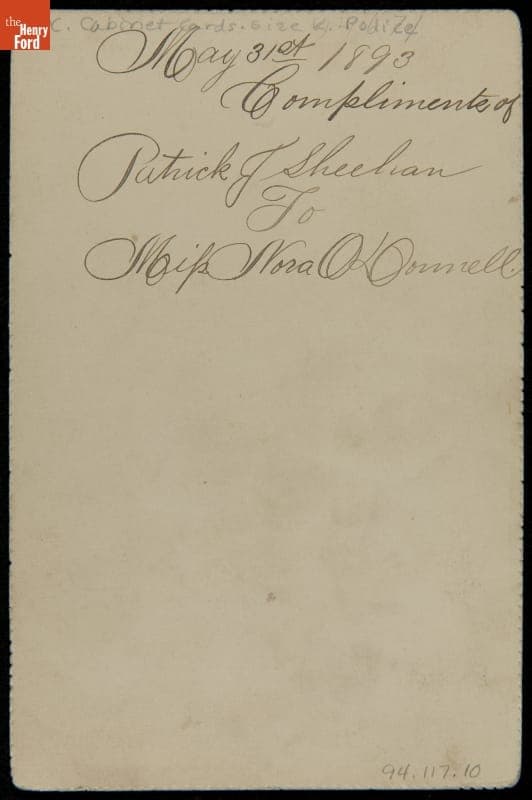 the
Henry
Ford
C. Cabinet Cards. Size
May 31st 1893
Compliments of
Patrick J Sheehan
To
Miss Nora O'Donnell.
94.117.10